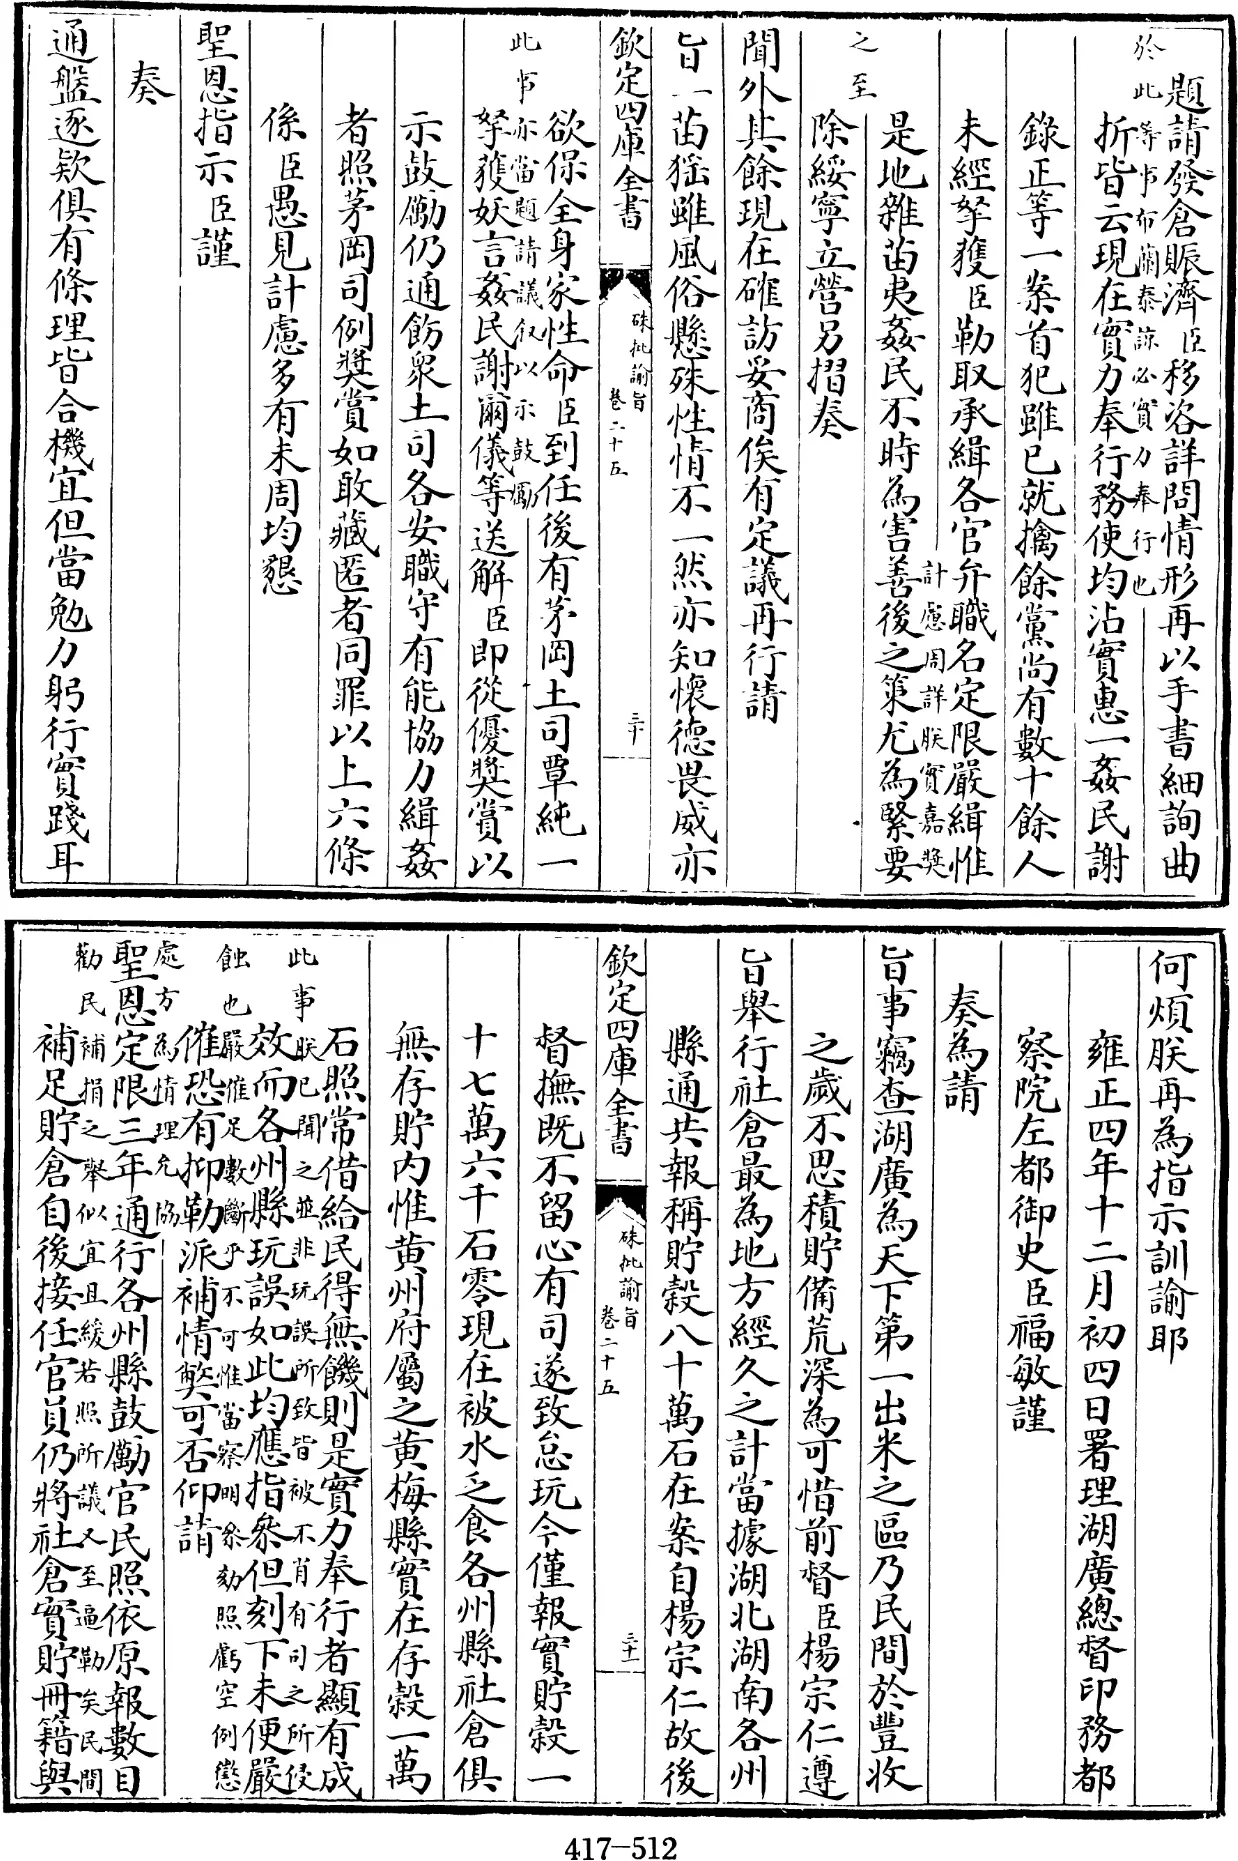 題請發倉賑濟臣移咨詳問情形再以手書細詢曲
於此等事布蘭泰諒必實力奉行也
折皆云現在實力奉行務使均沾實惠一姦民謝
錄正等一案首犯雖已就擒餘黨尚有數十餘人
未經拏獲臣勒取承緝各官弁職名定限嚴緝惟
計慮周詳朕實嘉奬
是地雜苗夷姦民不時為害善後之策尤為緊要
之至
除綏寧立營另摺奏
聞外其餘現在確訪妥商俟有定議再行請
旨一苗猺雖風俗懸殊性情不一然亦知懷德畏威亦
欽定四庫全書 硃批諭旨 卷二十五 三十
欲保全身家性命臣到任後有茅岡土司覃純一
此事亦當題請議叙以示鼓勵
拏獲妖言姦民謝爾儀等送解臣即從優奬賞以
示鼓勵仍通飭衆土司各安職守有能協力緝姦
者照茅岡司例奬賞如敢藏匿者同罪以上六條
係臣愚見計慮多有未周均懇
聖恩指示臣謹
奏
通盤逐欵俱有條理皆合機宜但當勉力躬行實踐耳
何煩朕再為指示訓諭耶
雍正四年十二月初四日署理湖廣總督印務都
察院左都御史臣福敏謹
奏為請
旨事竊查湖廣為天下第一出米之區乃民間於豐收
之歲不思積貯備荒深為可惜前督臣楊宗仁遵
旨舉行社倉最為地方經久之計當據湖北湖南各州
縣通共報稱貯穀八十萬石在案自楊宗仁故後
欽定四庫全書 硃批諭旨 卷二十五 三十一
督撫既不留心有司遂致怠玩今僅報實貯穀一
十七萬六千石零現在被水乏食各州縣社倉俱
無存貯内惟黄州府屬之黄梅縣實在存穀一萬
石照常借給民得無饑則是實力奉行者顯有成
此事朕已聞之並非玩誤所致皆被不肖有司之所侵
效而各州縣玩誤如此均應指叅但刻下未便嚴
蝕也嚴催足數斷乎不可惟當察明叅劾照虧空例懲
催恐有抑勒派補情弊可否仰請
處方為情理允協
聖恩定限三年通行各州縣鼓勵官民照依原報數目
勸民補捐之舉似宜且緩若照所議又至逼勒矣民間
補足貯倉自後接任官員仍將社倉實貯冊籍與
417-512